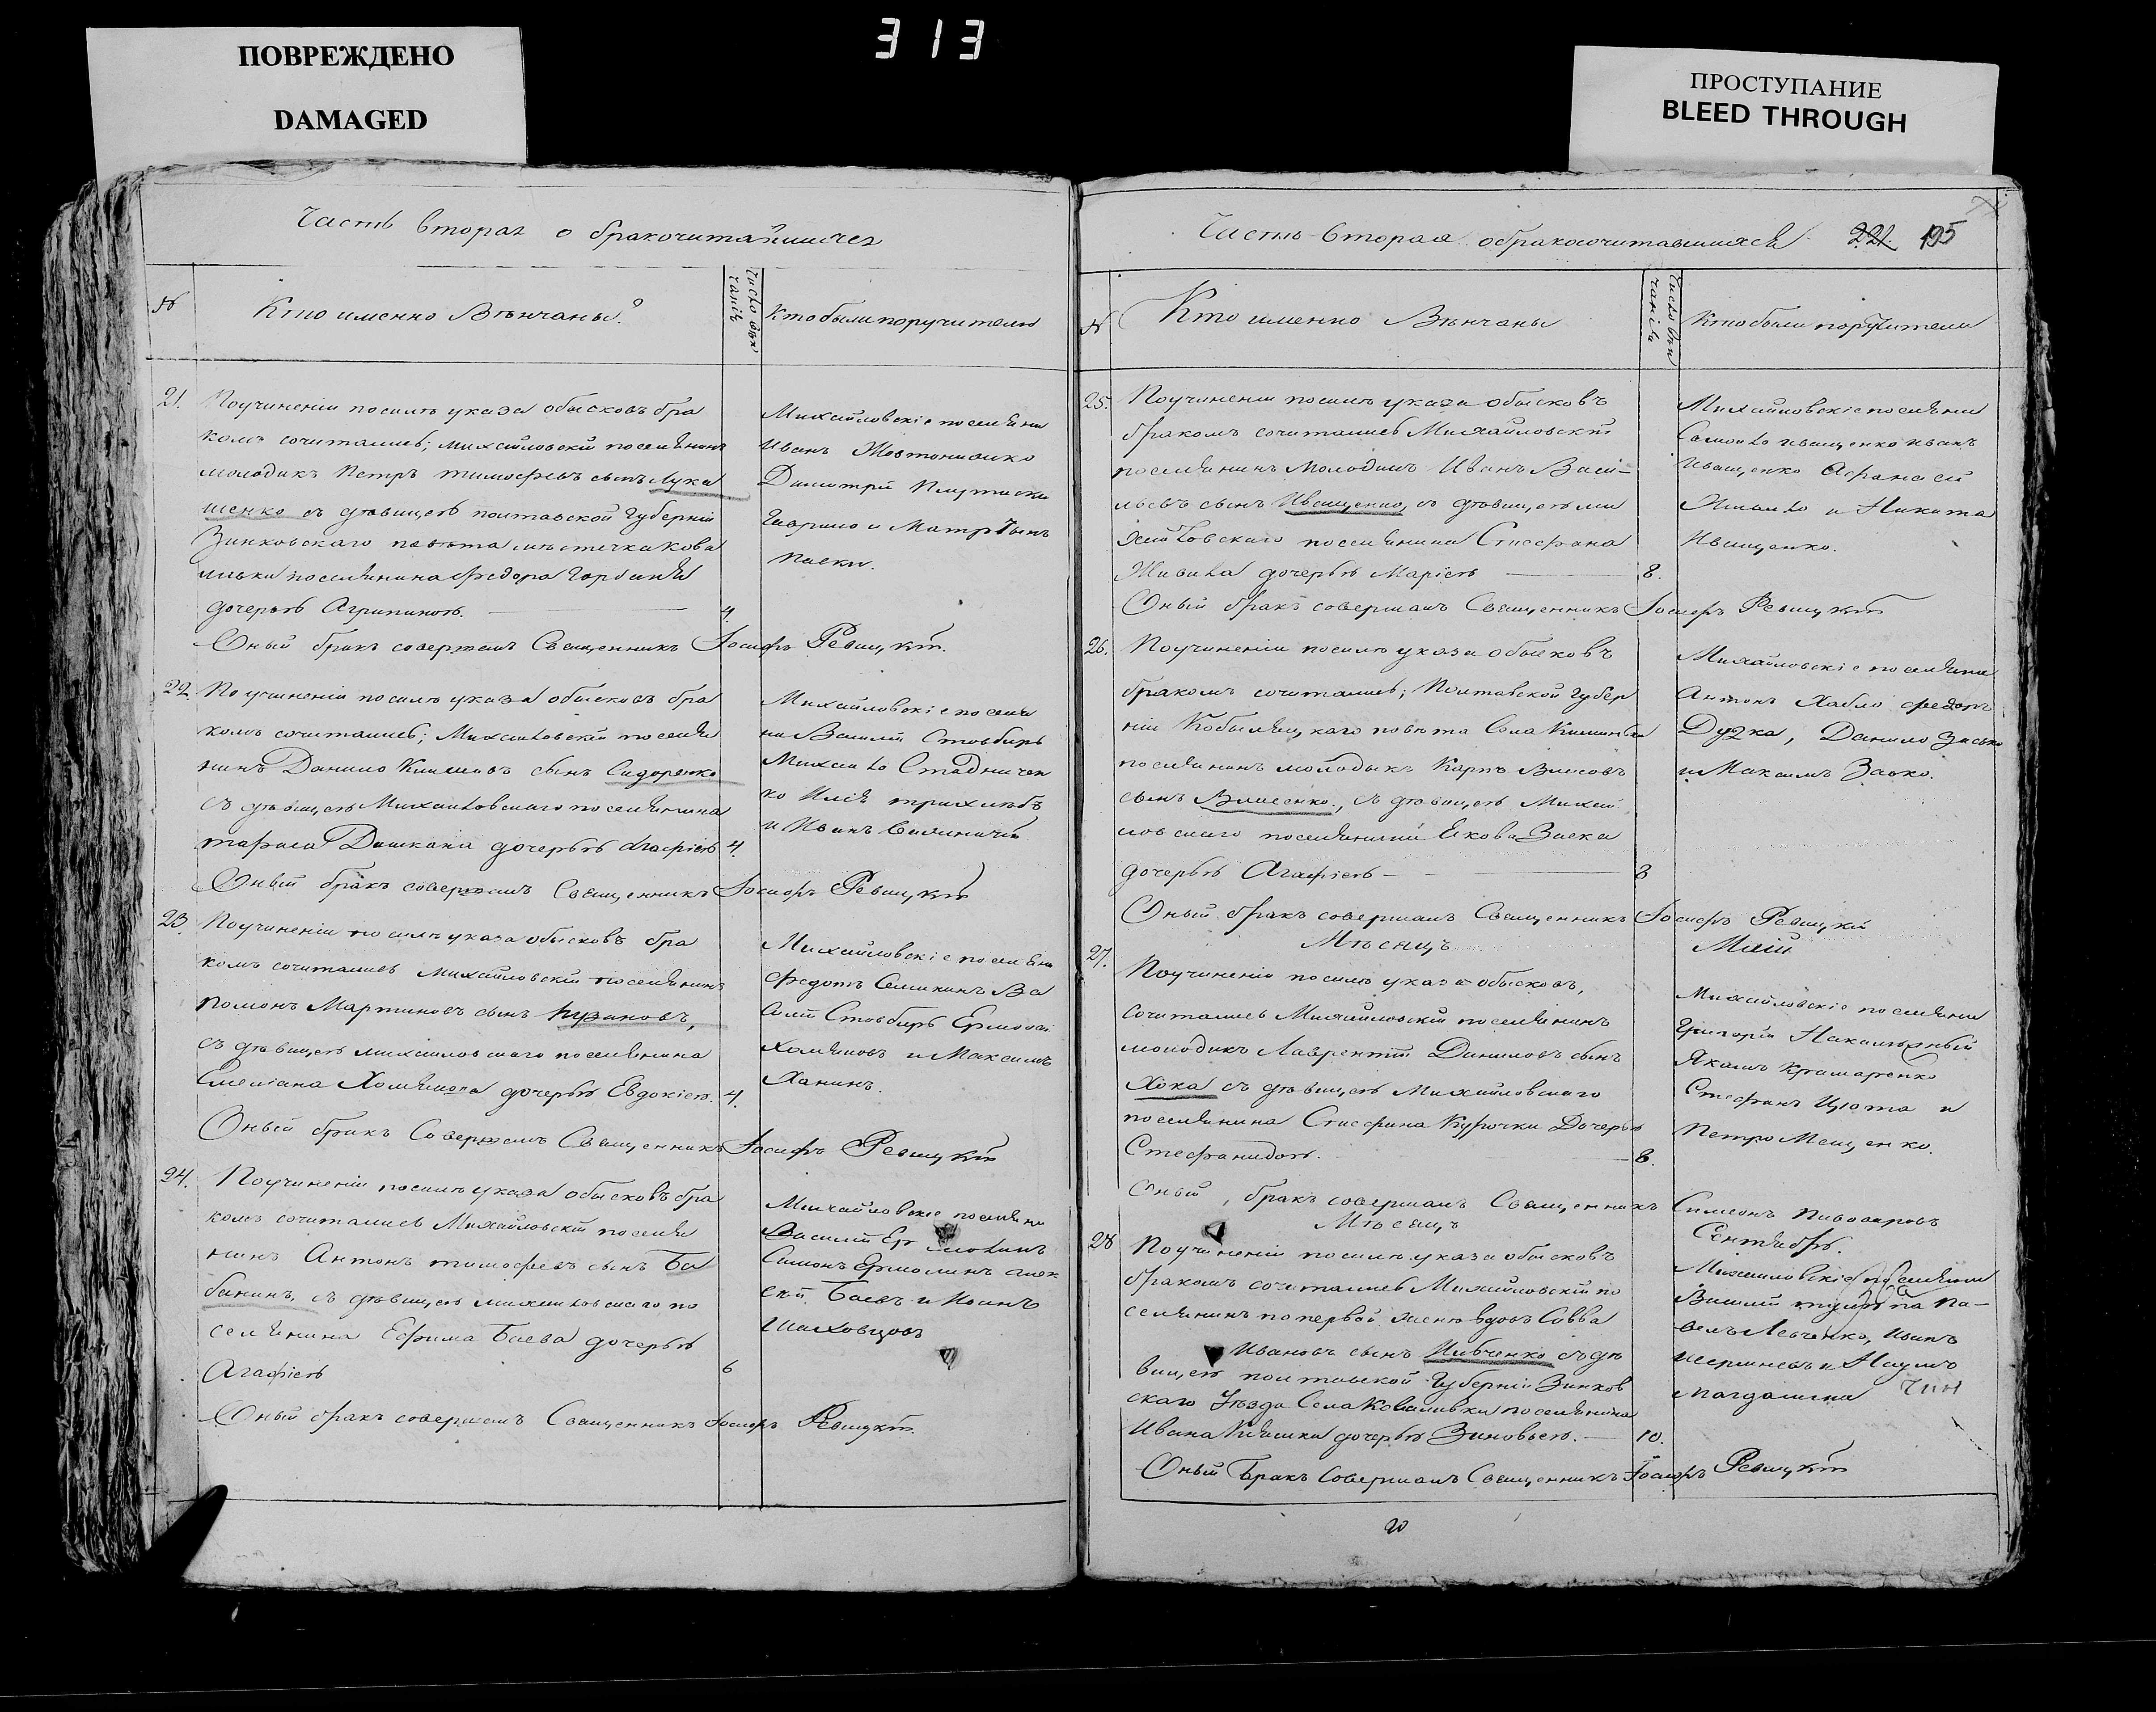 ПОВРЕЖДЕНО
DAMAGED
313
ПРОСТУПАНИЕ
BLEED THROUGH
Часть вторая о бракочитавшихся
№
Кто именно Вѣнчаны?
Число вѣнчанія
Кто были поручители
21.
Поучиненіи посилѣ указа обысковъ бра
комъ сочитались; михайловскій поселянинъ
молодикъ Петръ тимофѣевъ сынъ Лука
шенко съ дѣвицею полтавской Губерніи
Зинковскаго повѣта мѣстечка Кова
левки поселянина Федора
дочерью Агрипиною.
4.
Михайловскіе поселяни
Иванъ
Димитрій
Гаврило и
Оный бракъ совершалъ Священникъ Іосифъ Ревицкій.
22
По учиненіи посилѣ указа обысковъ бра
комъ сочитались; Михайловскій поселя
нинъ Данило Климовъ сынъ Сидоренко
съ дѣвицею Михайловскаго поселянина
дочерью Агафіею
4.
Михайловскіе поселя
ни Василій Стовбиръ
Михайло Стадничен
ко Илія
и Иванъ
Оный бракъ совершалъ Священникъ Іосифъ Ревицкій
23.
Поучиненіи посилѣ указа обысковъ бра
комъ сочитались Михайловскій поселянинъ
Мартиновъ сынъ Пузановъ,
съ дѣвицею михайловскаго поселянина
Емеліана Хомякова дочерью Евдокіею.
4.
Михайловскіе поселяни
Федотъ Ва
силій Стовбиръ Ермолай
Хомяковъ и Максимъ
Ханинъ.
Оный бракъ Совершалъ Священникъ Іосифъ Ревицкій
24.
Поучиненіи посилѣ указа обысковъ бра
комъ сочитались Михайловскій поселя
нинъ Антонъ тимофеевъ сынъ Ба
банинъ, съ дѣвицею михайловскаго по
селянина Ефима Баева дочерью
Агафіею
6
Михайловскіе поселяни
Василій
Симонъ Ермолинъ алек
сѣй Баевъ и Иванъ
Шаховцовъ
Оный бракъ совершалъ Священникъ Іосифъ Ревицкій.
Часть вторая о бракосочитавшихся 221. 195
№
Кто именно Вѣнчаны
Число вѣнчанія
Кто были поручители
25.
Поучиненіи посилѣ указа обысковъ
бракомъ сочитались Михайловскій
поселянинъ молодикъ Иванъ Васи-
льевъ сынъ Иващенко, съ дѣвицею ми
хайловскаго поселянина Стефана
дочерью Маріею
8.
Михайловскіе поселяни
Самойло иващенко иванъ
Иващенко Афанасій
и Никита
Иващенко.
Оный бракъ совершалъ Священникъ Іосифъ Ревицкій
26.
Поучиненіи посилѣ указа обысковъ
бракомъ сочитались; Полтавской Губер
ніи Кобыляцкаго повѣта Села
поселянинъ молодыкъ Карпъ Власовъ
сынъ Власенко., съ дѣвицею Михай
ловскаго поселянина Екова Заека
дочерью Агафіею
8
Михайловскіе поселяни
Антонъ Хабло Федоръ
Дудка, Данило
и Максимъ
Оный бракъ совершалъ Священникъ Іосифъ Ревицкій
Мѣсяцъ Май
27.
Поучиненіи посилѣ указа обысковъ,
сочитались Михайловскій поселянинъ
молодикъ Лаврентій Даниловъ сынъ
Хока съ дѣвицею Михайловскаго
поселянина Стефана Курочки Дочерью
Стефанидою.
8.
Михайловскіе поселяни
Григорій Накалюжный
Якимъ Крамаренко
Стефанъ Цюпа и
Петро
Оный, бракъ совершалъ Священникъ Симеонъ Пивоваровъ
Мѣсяцъ Сентябрь.
28
Поучиненіи посилѣ указа обысковъ
бракомъ сочитались Михайловскій по
селянинъ попервой женѣ вдовъ Савва
Ивановъ сынъ Шевченко съ дѣ
вицею полтавской Губерніи Зинков
скаго Уѣзда Села Ковалевки поселянина
Ивана дочерью Зиновьею.
10.
Михайловскіе поселяни
Василій Па-
велъ Левченко, Иванъ
и Наумъ
Оный Бракъ Совершалъ Священникъ Іосифъ Ревицкій